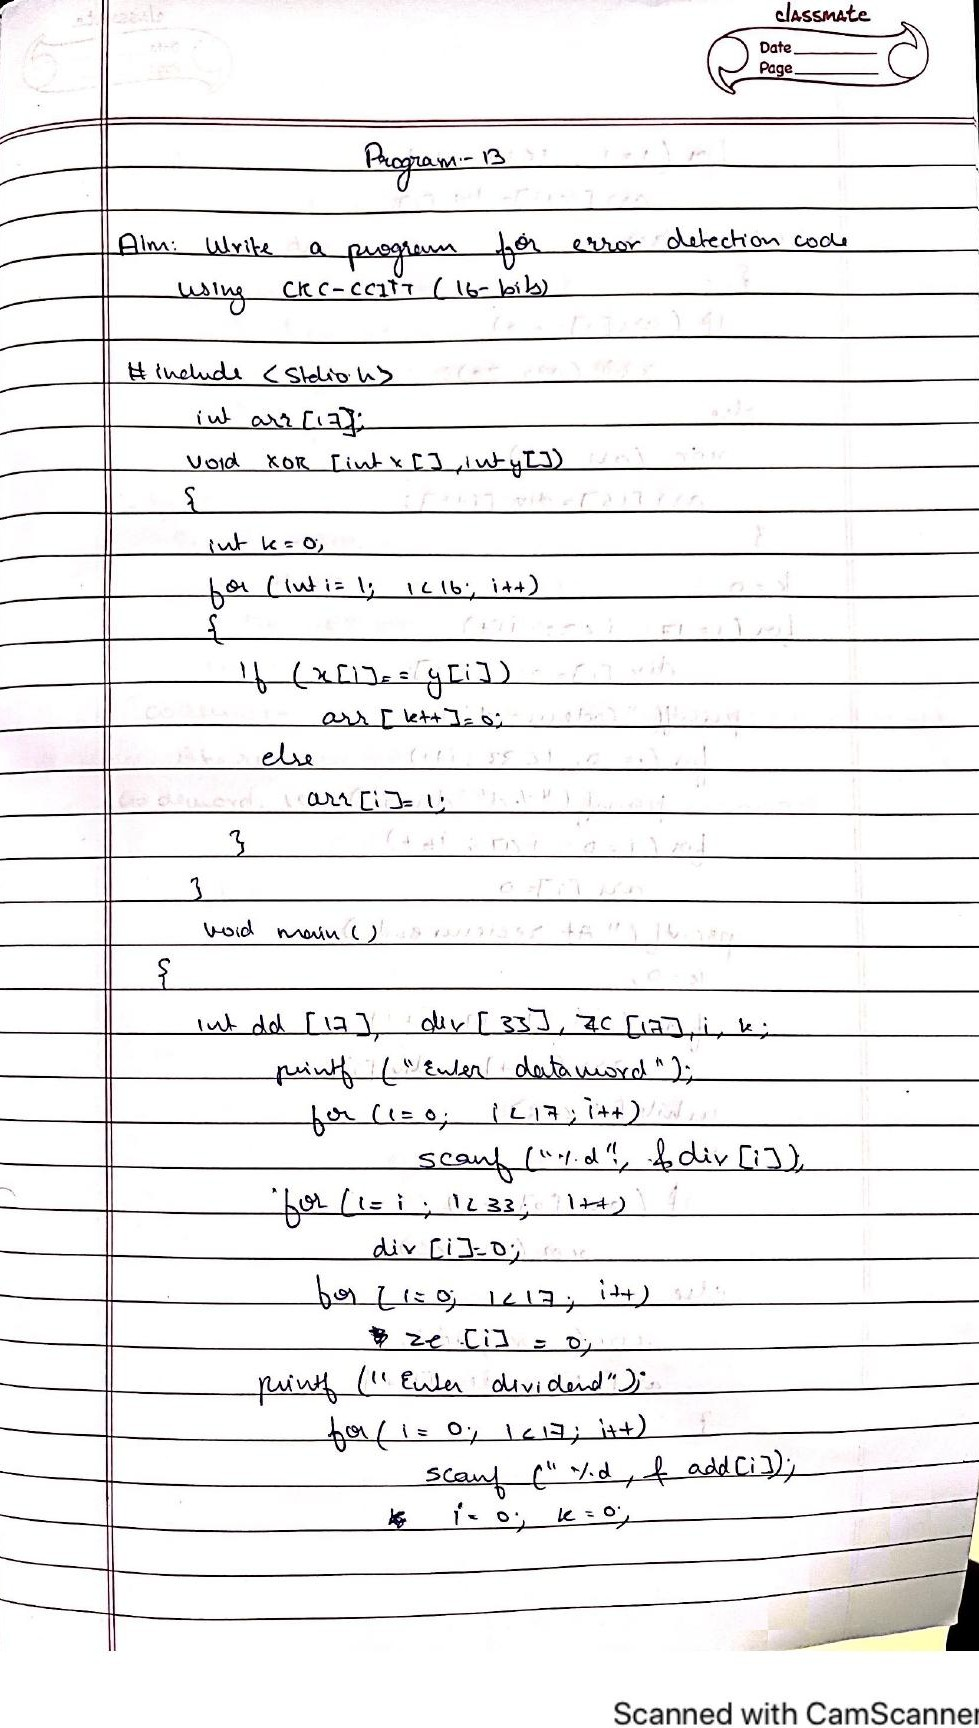 classmate
Date
Page
Program:- 13
AIm: Write a program for error detection code
using CRC-CCITT (16-bits)
#include <Stdio.h>
int arr [17];
void XOR [int x [] , int y[])
{
int k = 0;
for (int i = 1; i < 16; i++)
{
If (x[i] == y[i])
arr [k++] = 0;
else
arr [i] = 1;
}
}
void main ()
{
int dd [17], div [33], ze [17], i, k;
printf ("Enter dataword");
for (i = 0; i < 17; i++)
scanf ("%d", & div [i]);
for (i = i ; i < 33; i++)
div [i] = 0;
for [i = 0; i < 17; i++)
ze [i] = 0;
printf ("Enter dividend");
for (i = 0; i < 17; i++)
scanf ("%d, & add [i]);
i = 0; k = 0;
Scanned with CamScanner